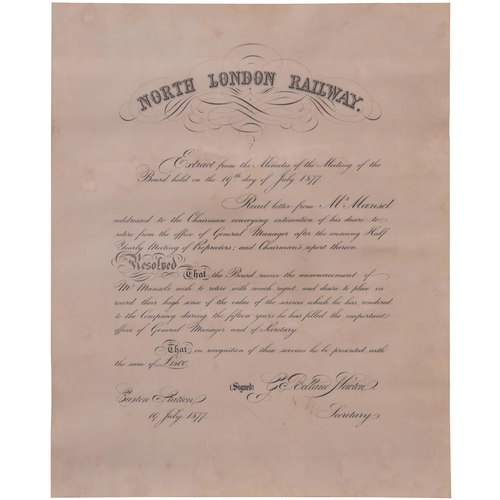 NORTH LONDON RAILWAY.
Extract from the Minutes of the Meeting of the
Board held on the 19th day of July 1877
Read letter from Mr Mansel
addressed to the Chairman conveying intimation of his desire to
retire from the office of General Manager after the ensuing Half
Yearly Meeting of Proprietors; and Chairman's report thereon.
Resolved That the Board receive the announcement of
Mr Mansel's wish to retire with much regret, and desire to place on
record their high sense of the value of the services which he has rendered
to the Company during the fifteen years he has filled the important
office of General Manager and of Secretary.
That in recognition of these services he be presented with
the sum of
(Signed) Newton
Euston Station Secretary.
19 July 1877